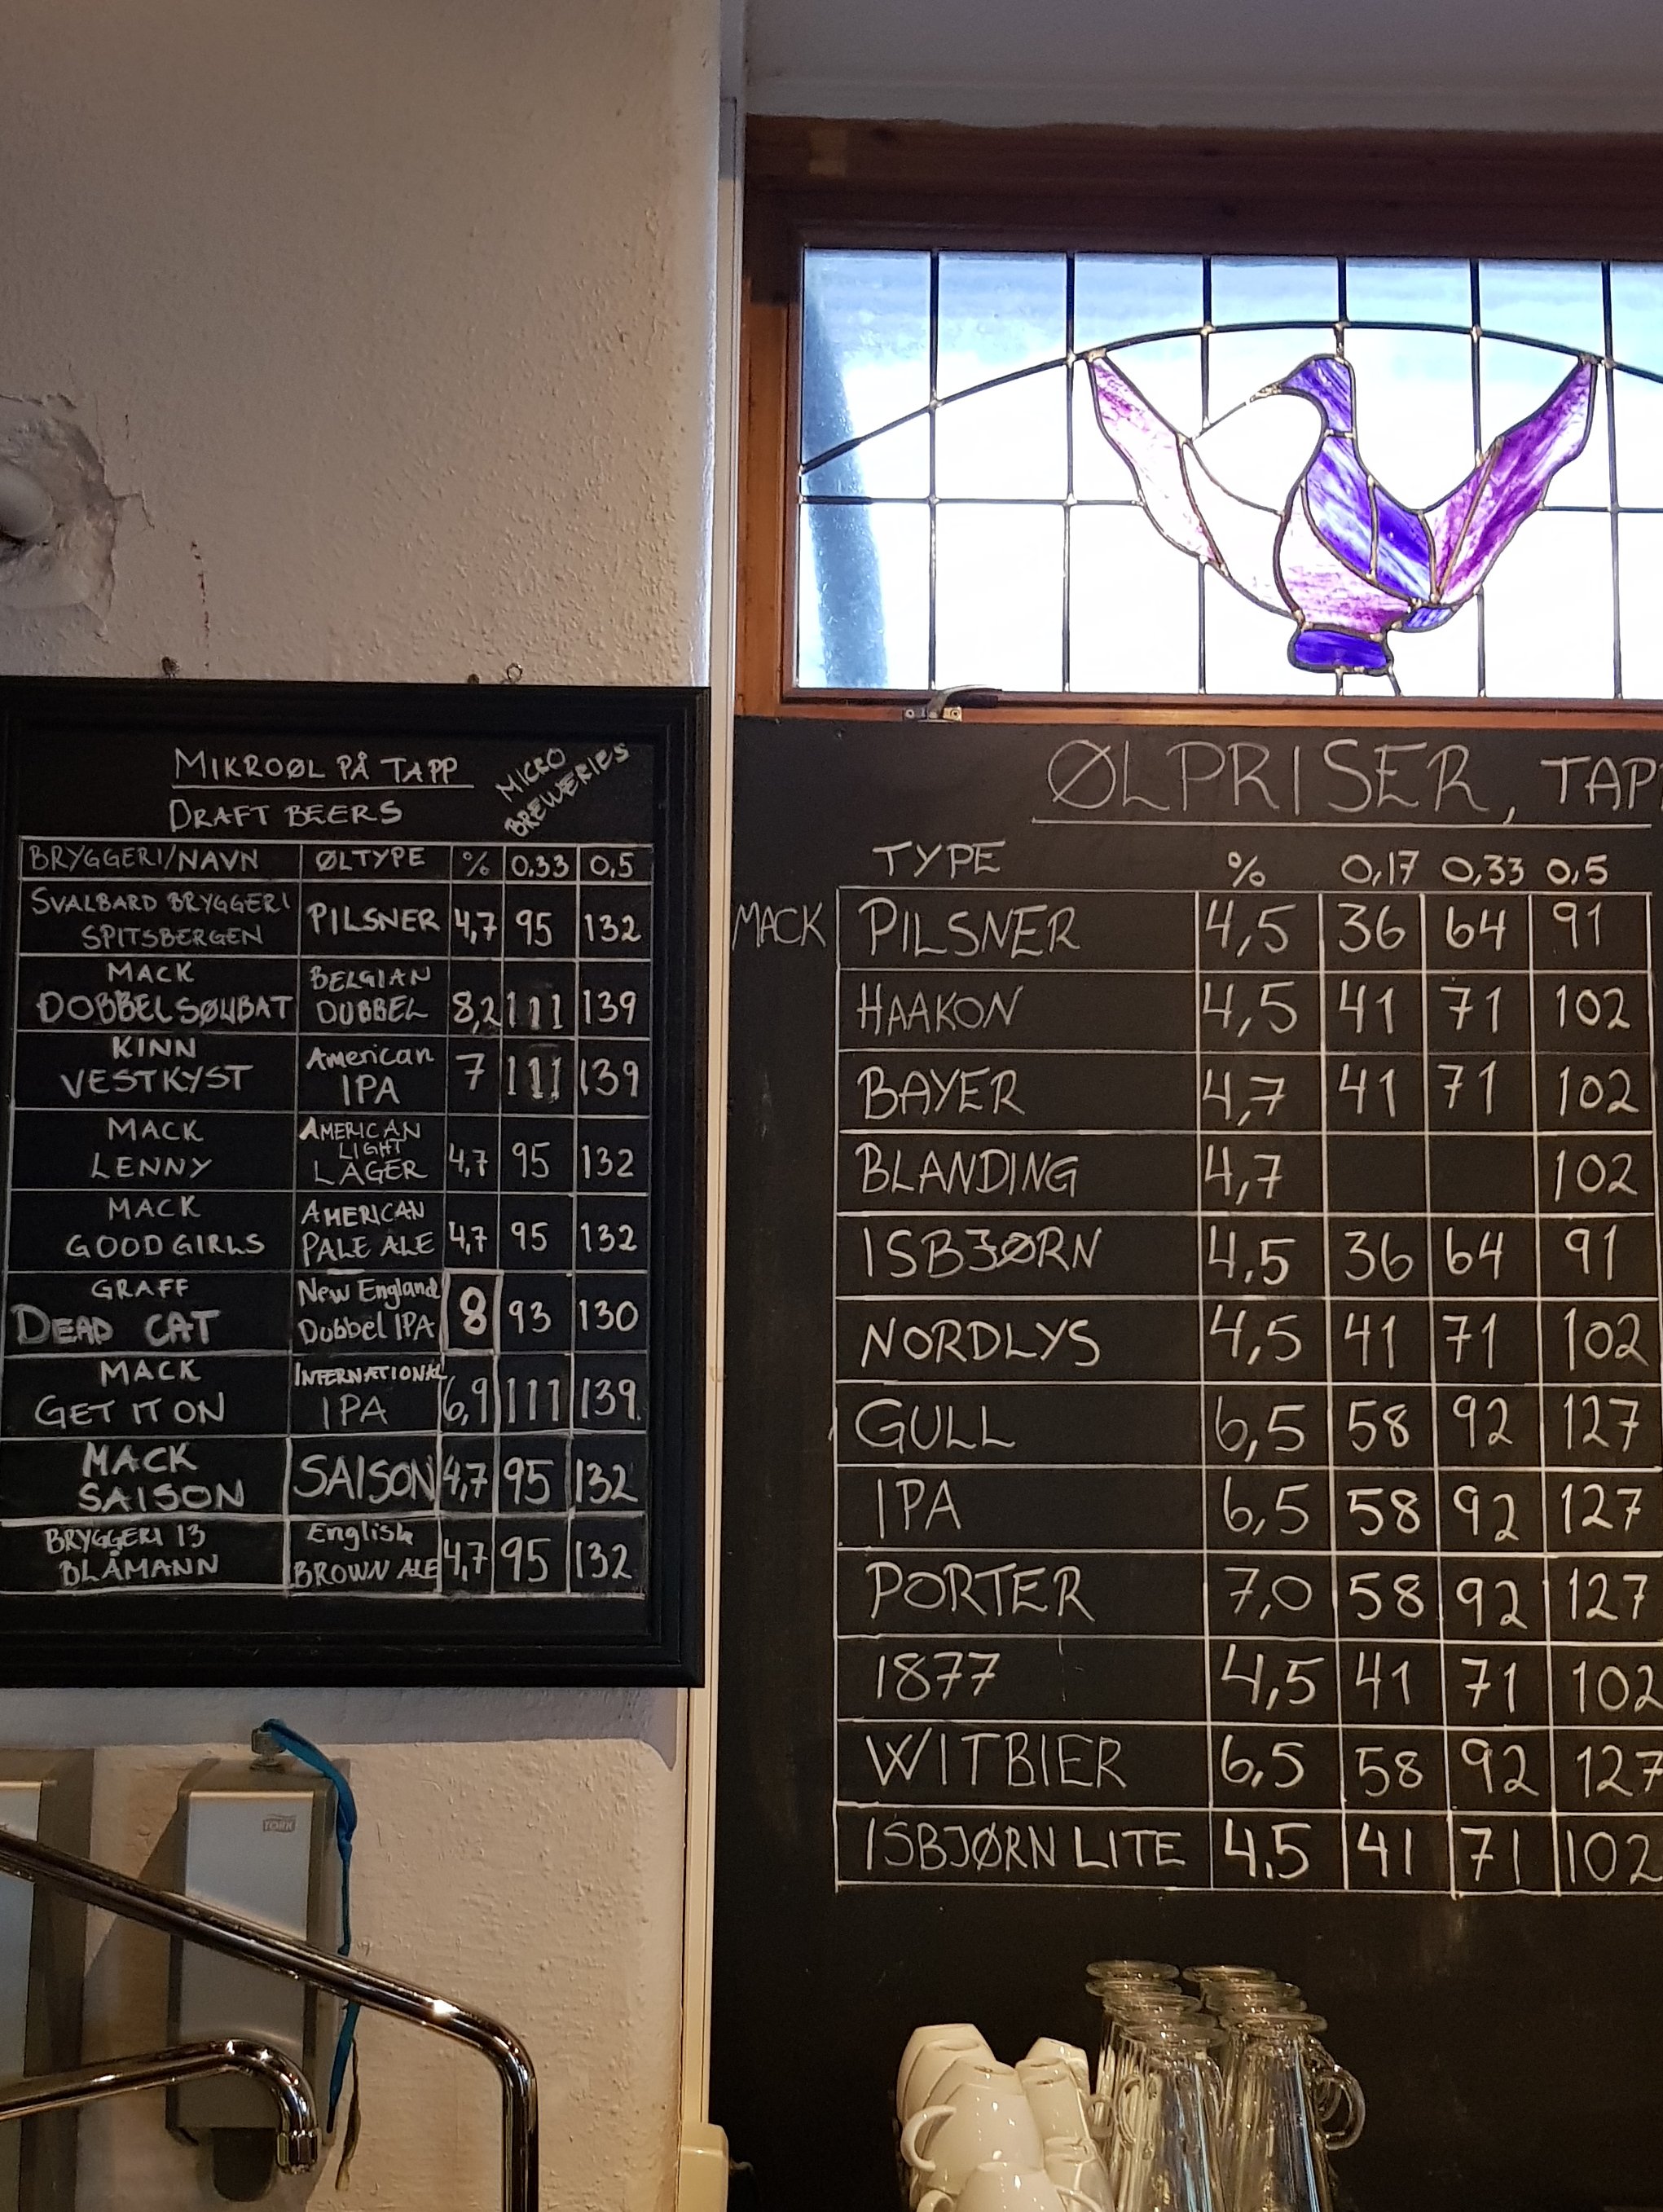 MIKROØL PÅ TAPP
DRAFT BEERS
MICRO
BREWERIES
BRYGGERI/NAVN ØLTYPE % 0,33 0,5
SVALBARD BRYGGERI
SPITSBERGEN PILSNER 4,7 95 132
MACK BELGIAN
DOBBEL SØUBAT DUBBEL 8,2 111 139
KINN American
VESTKYST IPA 7 111 139
MACK AMERICAN
LIGHT
LENNY LAGER 4,7 95 132
MACK AMERICAN
GOOD GIRLS PALE ALE 4,7 95 132
GRAFF New England
DEAD CAT Dobbel IPA 8 93 130
MACK INTERNATIONAL
GET IT ON IPA 6,9 111 139
MACK
SAISON SAISON 4,7 95 132
BRYGGERI 13 English
BLÅMANN BROWN ALE 4,7 95 132
ØLPRISER, TAP
TYPE % 0,17 0,33 0,5
MACK PILSNER 4,5 36 64 91
HAAKON 4,5 41 71 102
BAYER 4,7 41 71 102
BLANDING 4,7 102
ISBJØRN 4,5 36 64 91
NORDLYS 4,5 41 71 102
GULL 6,5 58 92 127
IPA 6,5 58 92 127
PORTER 7,0 58 92 127
1877 4,5 41 71 102
WITBIER 6,5 58 92 127
ISBJØRN LITE 4.5 41 71 102
TORK